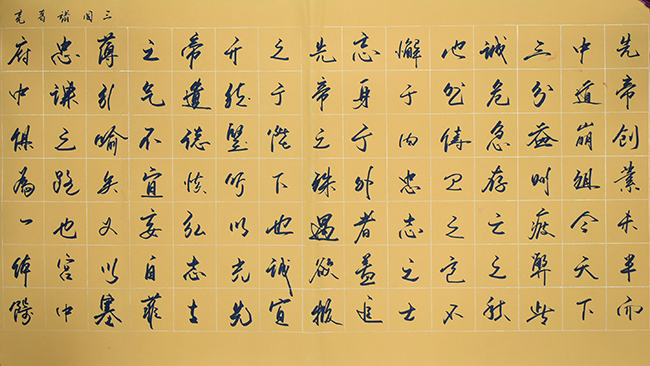 三国诸葛亮
先帝创業未半而
中道崩殂今天下
三分益州疲弊此
诚危急存亡之秋
也然侍卫之臣不
懈于内忠志之士
忘身于外者盖追
先帝之殊遇欲报
之于陛下也诚宜
开张圣听以光先
帝遗德恢弘志士
之气不宜妄自菲
薄引喻失义以塞
忠谏之路也宫中
府中俱為一体陟